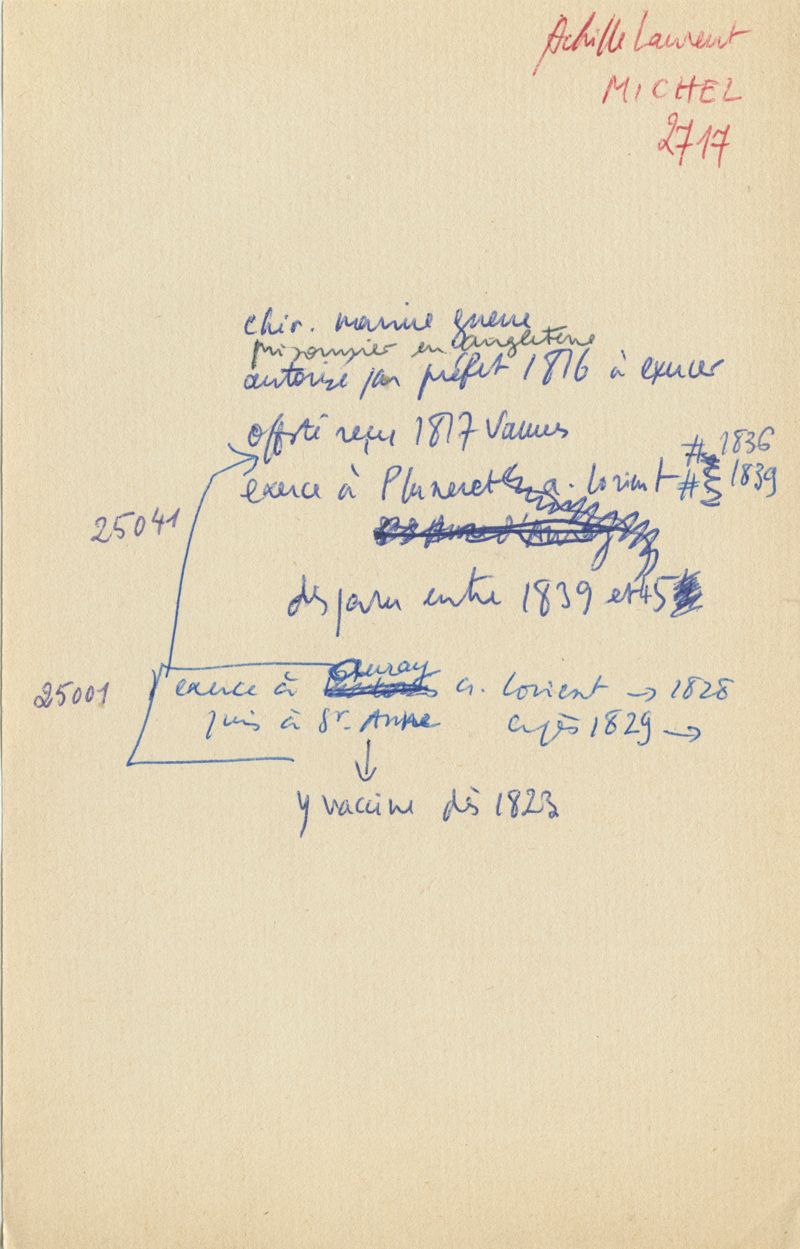 Achille Laurent
MICHEL
2717
chir. marine guerre
prisonnier en Angleterre
autorisé par préfet 1816 à exercer
offsté reçu 1817 Vannes
exerce à Pluneret a. Lorient # 1836
# 1839
25041
disparu entre 1839 et 45
Auray
25001 exerce à a. Lorient → 1828
puis à Ste Anne après 1829 →
y vaccine dès 1823